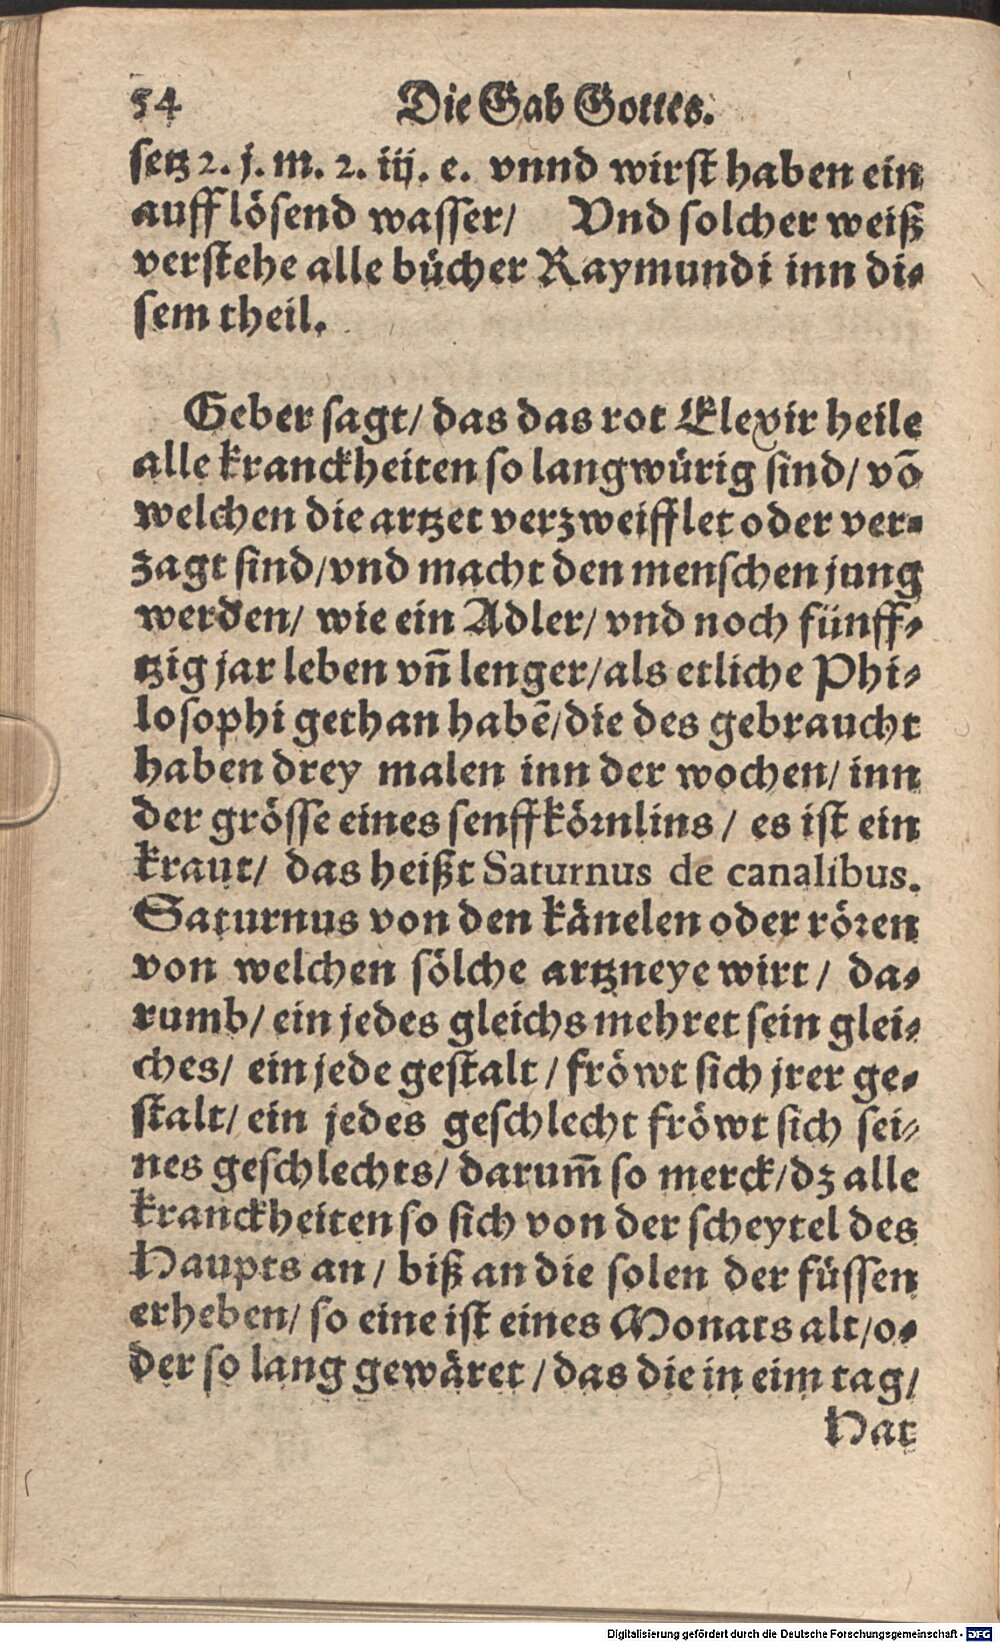 54 Die Gab Gottes.
setz 2. j. m. 2. iij. e. vnnd wirst haben ein
aufflösend wasser/ Vnd solcher weiß
verstehe alle bücher Raymundi inn di-
sem theil.
Geber sagt/ das das rot Elexir heile
alle kranckheiten so langwürig sind/ võ
welchen die artzet verzweifflet oder ver-
zagt sind/vnd macht den menschen jung
werden/ wie ein Adler/ vnd noch fünff-
tzig jar leben vñ lenger/als etliche Phi-
losophi gethan habẽ/die des gebraucht
haben drey malen inn der wochen/ inn
der grösse eines senffkörnlins/ es ist ein
kraut/ das heißt Saturnus de canalibus.
Saturnus von den känelen oder rören
von welchen sölche artzneye wirt/ da-
rumb/ ein jedes gleichs mehret sein glei-
ches/ ein jede gestalt/ fröwt sich jrer ge-
stalt/ ein jedes geschlecht fröwt sich sei-
nes geschlechts/ darum̃ so merck/dz alle
kranckheiten so sich von der scheytel des
Haupts an/ biß an die solen der füssen
erheben/ so eine ist eines Monats alt/o-
der so lang gewäret/ das die in eim tag/
Hat
Digitalisierung gefördert durch die Deutsche Forschungsgemeinschaft - DFG